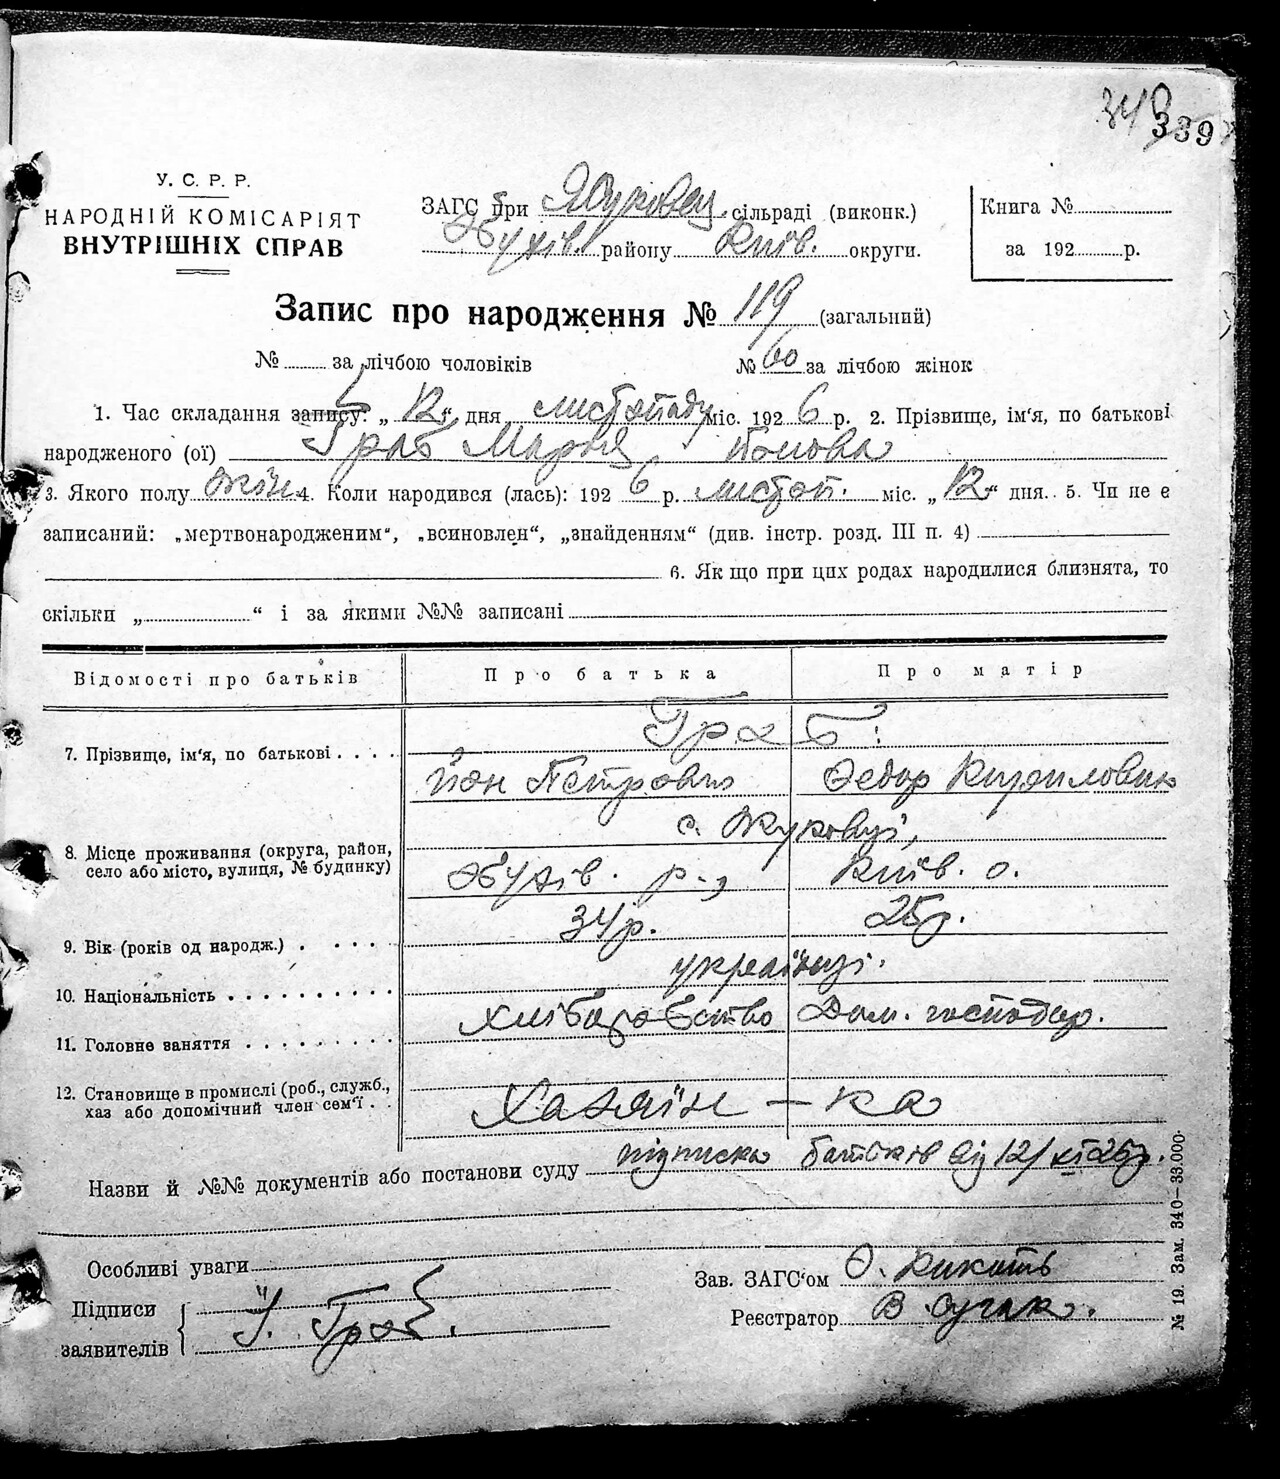 339
У. С. Р. Р.
НАРОДНІЙ КОМІСАРІЯТ
ВНУТРІШНІХ СПРАВ
ЗАГС при Жуковец. сільраді (виконк.)
Обухів. району Київ. округи.
Книга №
за 192 р.
Запис про народження № 119 (загальний)
№ за лічбою чоловіків № 60 за лічбою жінок
1. Час складання запису: „ 12 “ дня листопаду міс. 192 6 р. 2. Прізвище, ім‘я, по батькові
народженого (ої) Граб Марія
3. Якого полу жін. 4. Коли народився (лась): 192 6 р. листоп. міс. „ 12 “ дня. 5. Чи не є
записаний: „мертвонародженим“, „всиновлен“, „знайденням“ (див. інстр. розд. III п. 4)
6. Як що при цих родах народилися близнята, то
скільки „ “ і за якими №№ записані
Відомості про батьків Про батька Про матір
Граб.
7. Прізвище, ім‘я, по батькові
Петрович Кириловна
с. Жуковці,
8. Місце проживання (округа, район,
село або місто, вулиця, № будинку)
Обухів. р., Київ. о.
34 р. 25 р.
9. Вік (років од народж.)
українці.
10. Національність
хліборобство Дом. господар.
11. Головне заняття
12. Становище в промислі (роб., служб.,
хаз або допомічний член сем‘ї
Хазяїн – ка
Назви й №№ документів або постанови суду підписка батьків від 12/XI 26 р.
Особливі уваги
Підписи
заявителів
Й. Граб.
Зав. ЗАГС‘ом
Реєстратор В.
№ 19. Зам. 340—33.000.